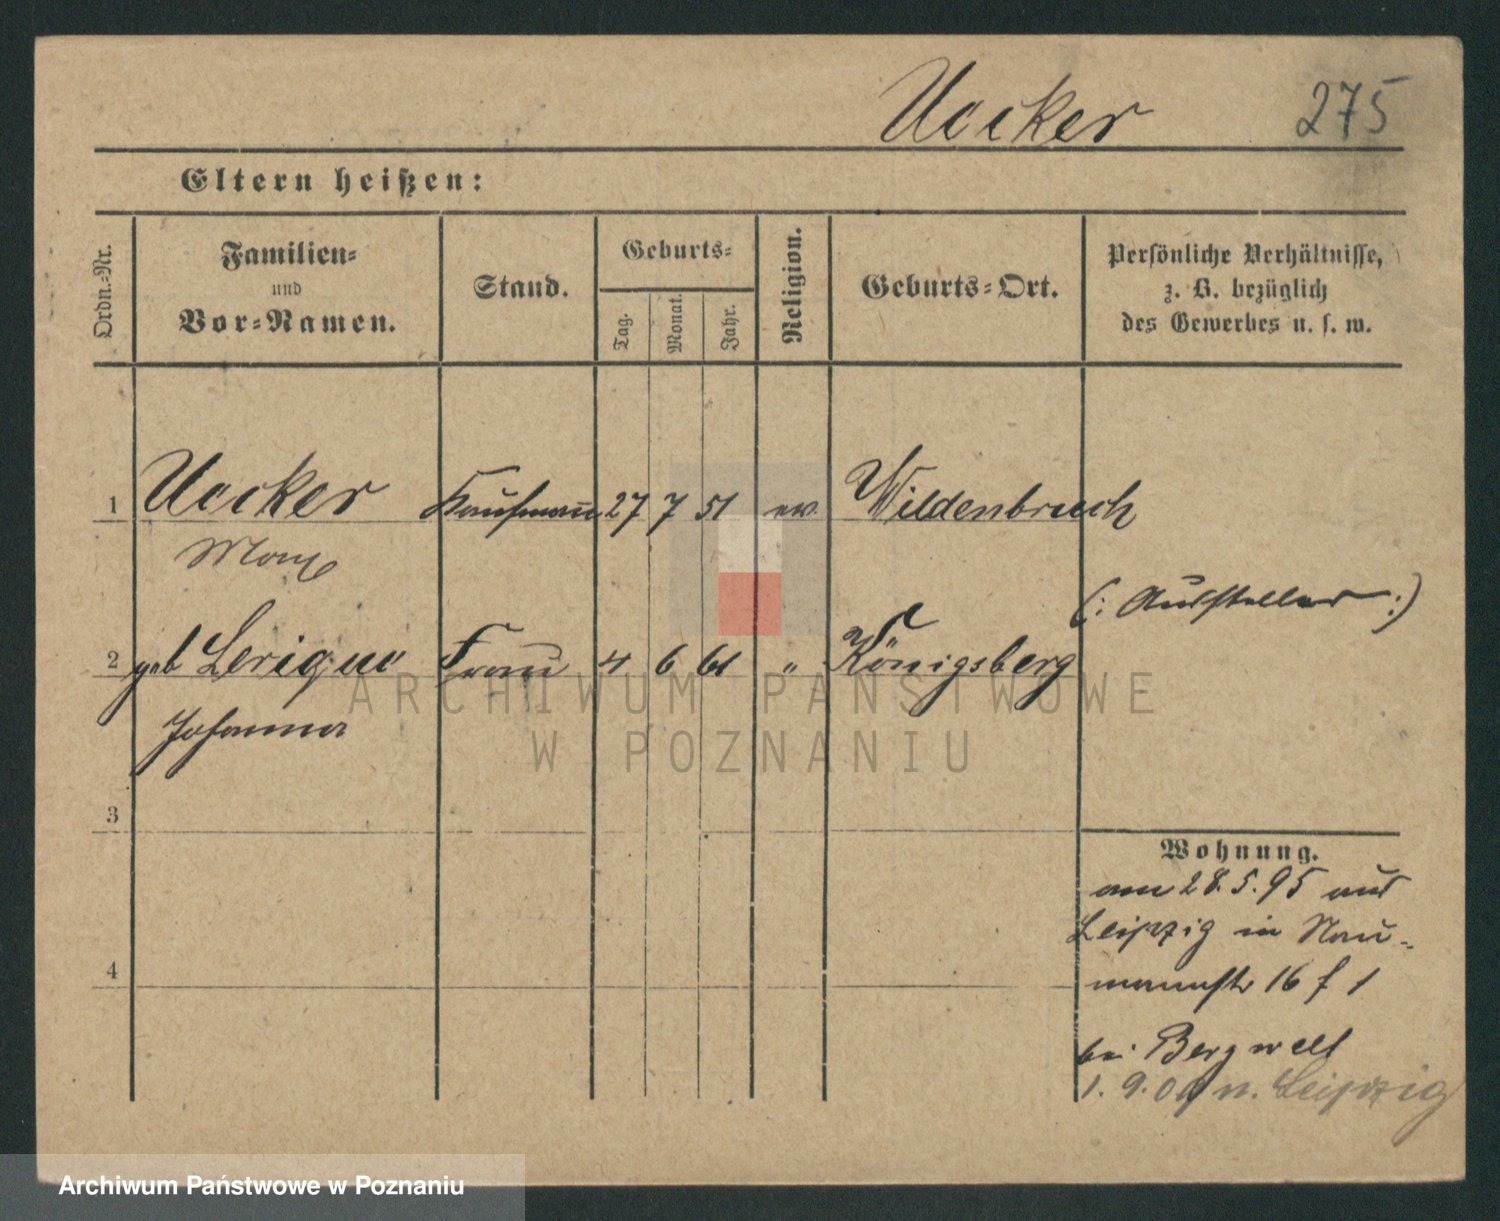 Uecker 275
Eltern heißen:
Ordn.-Nr.
Familien-
und
Vor-Namen.
Stand.
Geburts-
Tag.
Monat.
Jahr.
Religion.
Geburts-Ort.
Persönliche Verhältnisse,
z. B. bezüglich
des Gewerbes u. s. w.
1 Uecker Kaufmann 27 7 51 ev. Wildenbruch
Max
(: Aussteller :)
2 geb Lerique Frau 4 6 61 " Königsberg
Johanna
ARCHIWUM PAŃSTWOWE
W POZNANIU
3
Wohnung.
am 28.5.95 aus
Leipzig in Nau-
mannstr 16 I
4
bei Bergwelt
1.9.0 n. Leipzig
Archiwum Państwowe w Poznaniu